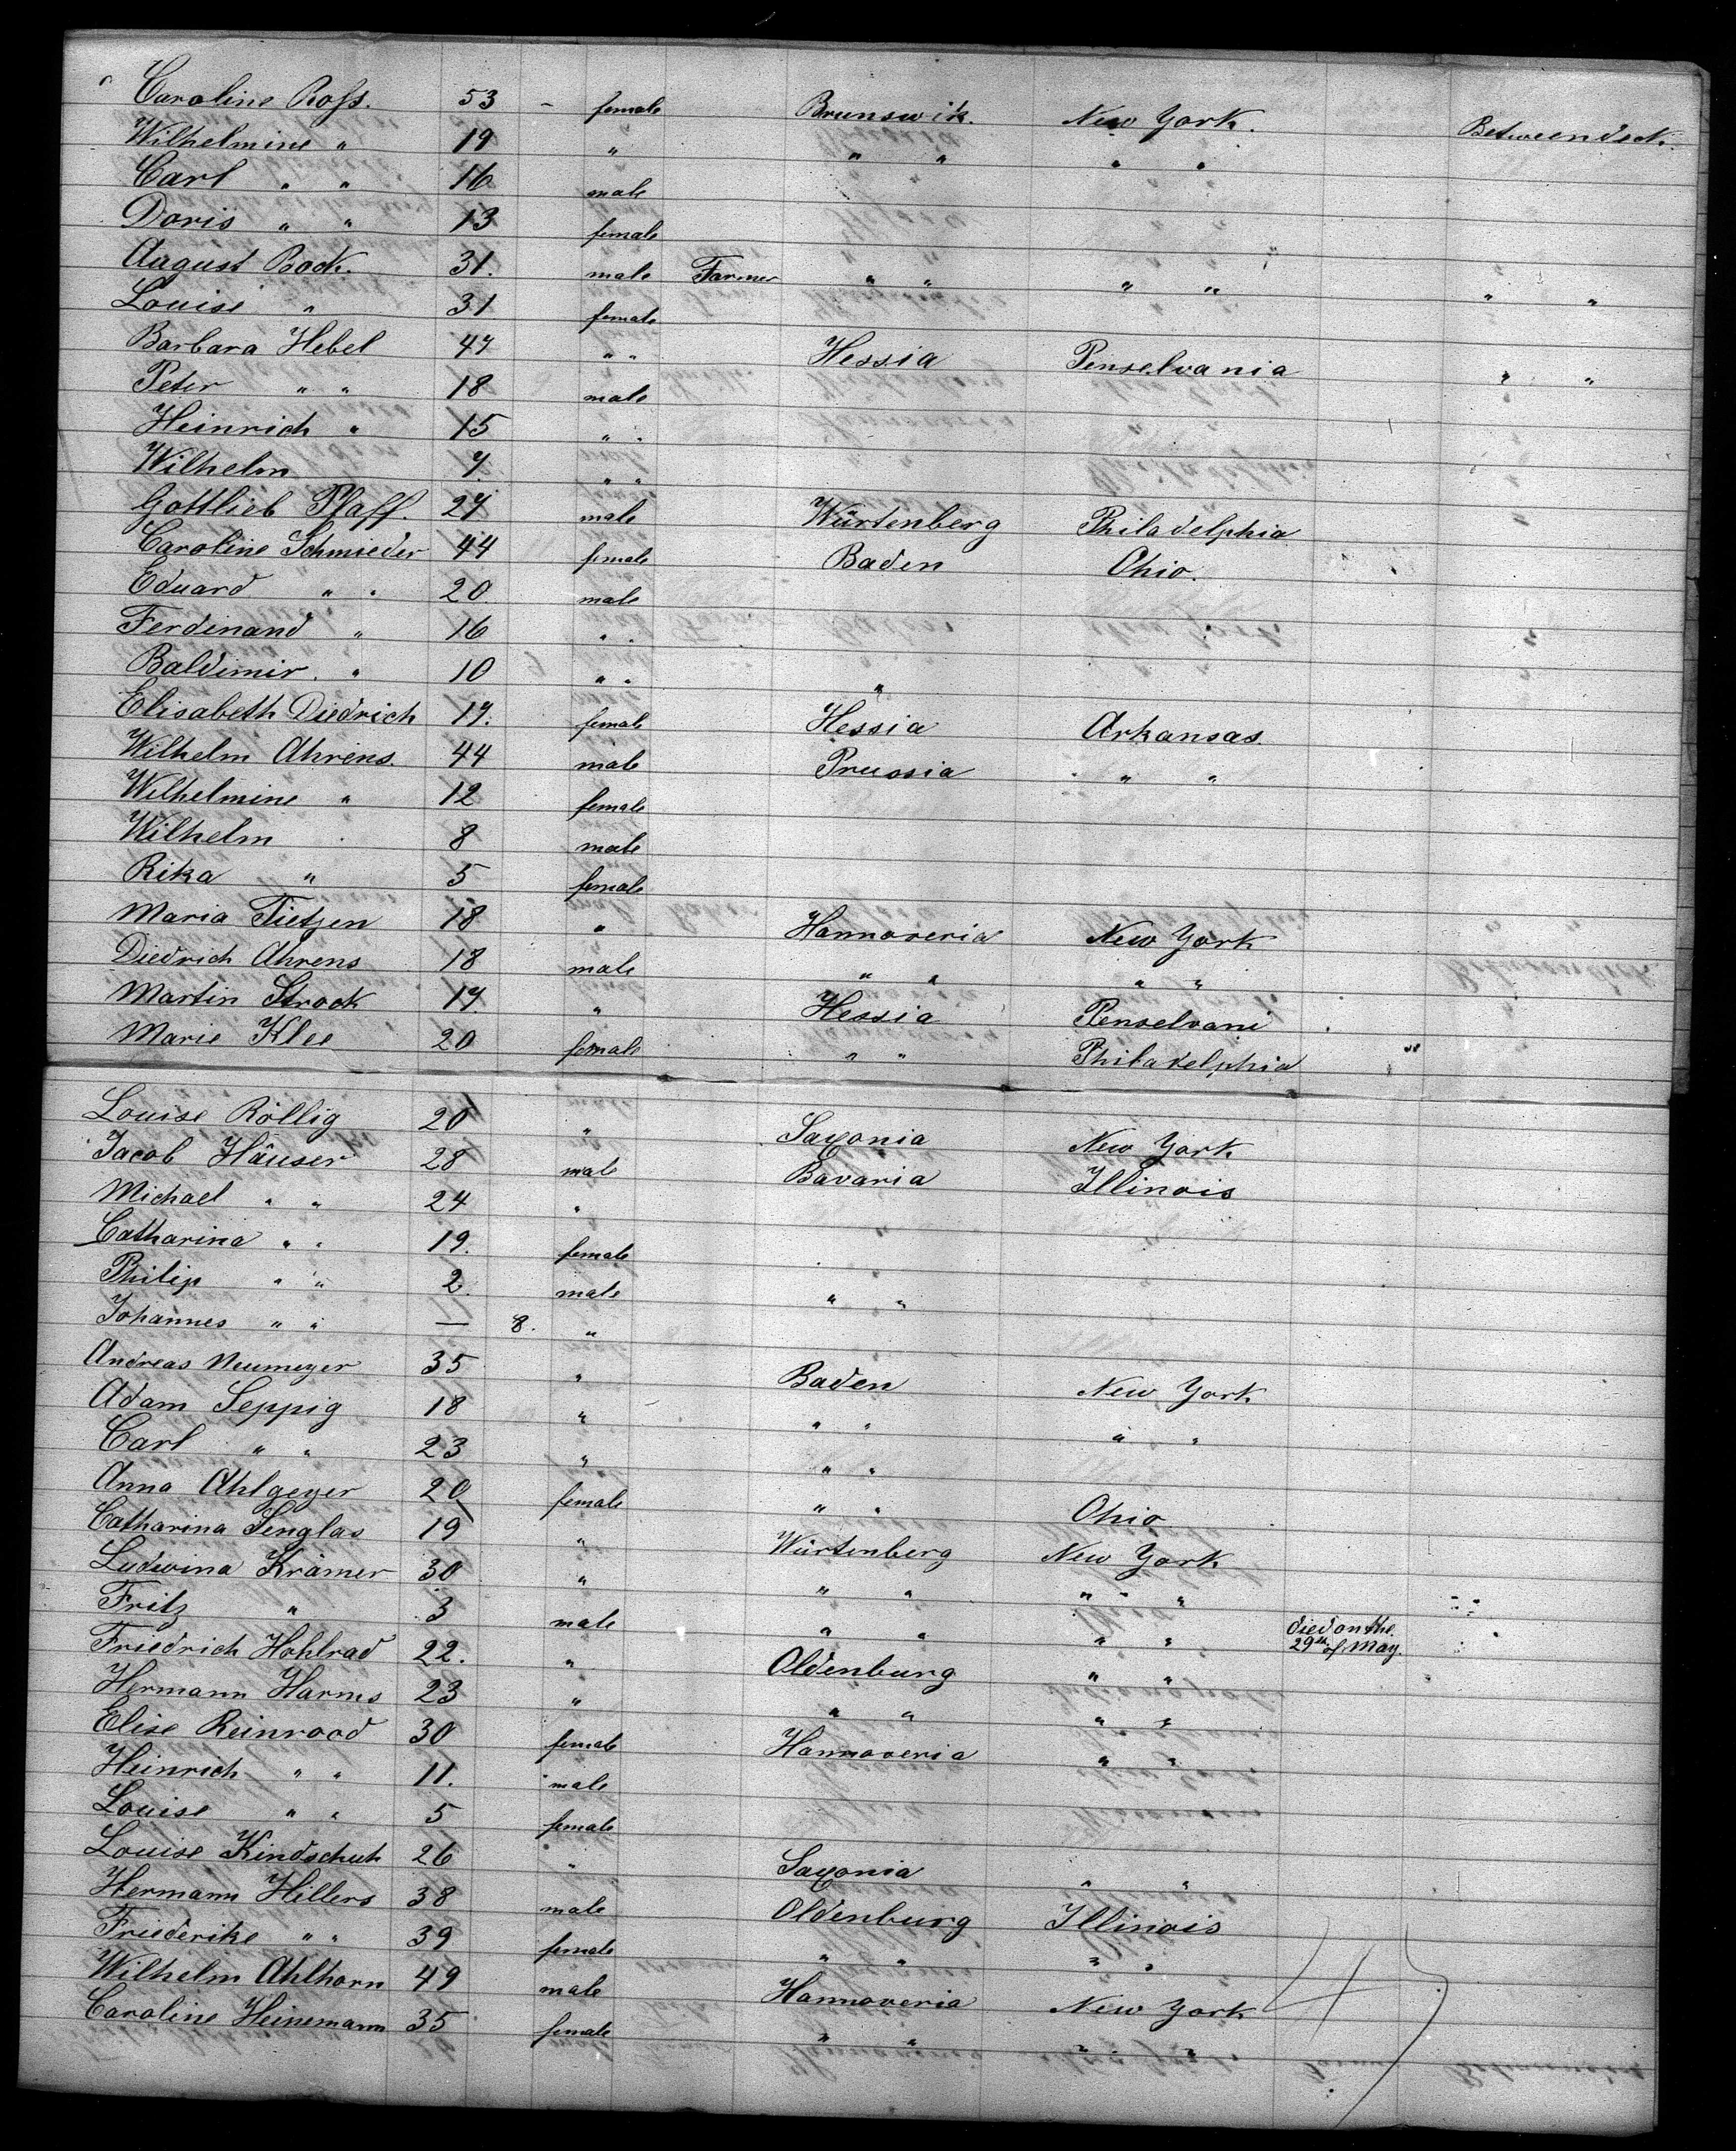 Caroline Roſs. 53 – female Brunswik. New York. Betweendeck.
Wilhelmine " 19 " " " " "
Carl " " 16 male
Doris " " 13 female
August Bock. 31. male Farmer " " " " " "
Louise " 31 female
Barbara Hebel 47 " " Hessia Penselvania " "
Peter " " 18 male
Heinrich " 15 " "
Wilhelm 7. " "
Gottlieb Pfaff. 27 male Würtenberg Philadelphia
Caroline Schmieder 44 female Baden Ohio.
Eduard " " 20. male
Ferdinand " 16 " "
Baldimir. " 10 " " "
Elisabeth Diedrich 17. female Hessia Arkansas.
Wilhelm Ahrens. 44 male Prussia " "
Wilhelmine " 12 female
Wilhelm 8 male
Rika " 5 female
Maria Tietzen 18 " Hannoveria New York
Diedrich Ahrens 18 male " " " "
Martin Strock 17. " Hessia Penselvani
Marie Klee 20 female " " Philadelphia "
Louise Röllig 20 " Saxonia New York
Jacob Häuser 28 male Bavaria Illinois
Michael " " 24 "
Catharina " " 19. female
Philip " " 2. male " "
Johannes " " — 8. "
Andreas Neumeyer 35 " Baden New York
Adam Seppig 18 " " " " "
Carl " " 23 " " "
Anna Ahlgeyer 20 female " " Ohio
Catharina Senglas 19 " Würtenberg New York
Ludwina Krämer 30 " " " " " "
Fritz " 3 male " " " " died on the
29th of May.
Friedrich Hohlrad 22. " Oldenburg " "
Hermann Harms 23 " " " " "
Elise Reinrood 30 female Hannoveria " "
Heinrich " " 11. male
Louise " " 5 female
Louise Kindschuh 26 " Saxonia " "
Hermann Hillers 38 male Oldenburg Illinois
Friederike " " 39 female " " " "
Wilhelm Ahlhorn 49 male Hannoveria New York
Caroline Heinemann 35 female " " " "